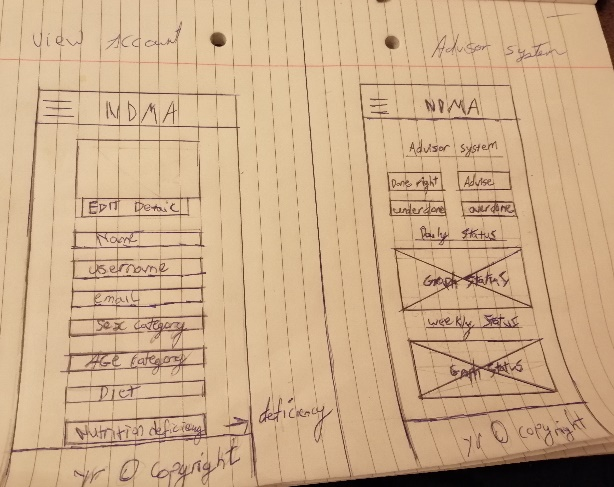 View Account
NDMA
EDIT Detail
Name
username
email
Sex category
AGE category
Diet
Nutrition deficiency
deficiency
yr © copyright
Advisor system
NDMA
Advisor system
Done right
Advise
underdone
overdone
Daily Status
Graph Status
weekly Status
Graph Status
yr © copyright